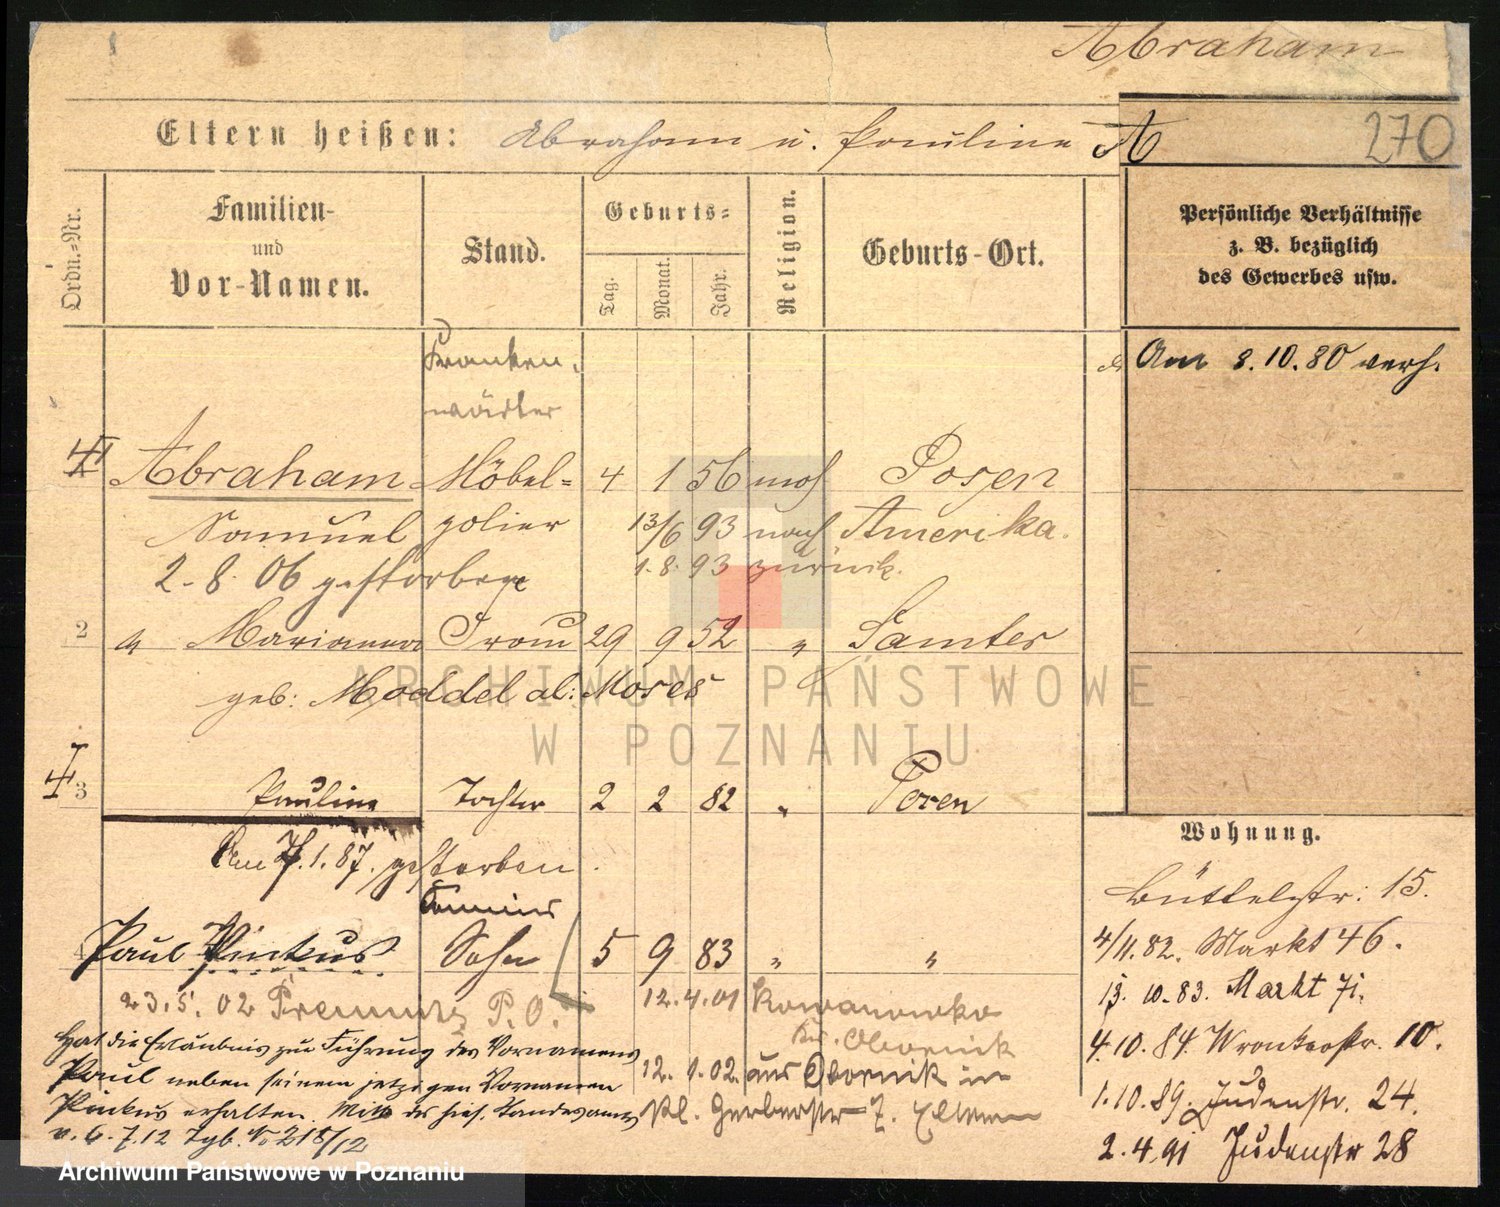 Abraham
Eltern heißen: Abraham u. Pauline A
270
Ordn.-Nr.
Familien- und Vor-Namen.
Stand.
Geburts-
Tag. Monat. Jahr.
Religion.
Geburts-Ort.
Persönliche Verhältnisse
z. B. bezüglich
des Gewerbes usw.
Kranken-
wärter
Am 8.10.80 verh.
Abraham Möbel- 4 1 56 mos Posen
Samuel polier 13/6 93 nach Amerika.
2.8.06 gestorben 1.8.93 zurück.
2 " Marianna Frau 29 9 52 " Samter
geb: Moddel al: Moses
3 Pauline Tochter 2 2 82 " Posen
Am 7.1.87. gestorben.
Commis
4 Paul Pinkus Sohn 5 9 83 " "
23.5.02 P.O. 12.4.01 Kowanowko
Kr. Obornik
Hat die Erlaubnis zur Führung des Vornamens
Paul neben seinem jetzigen Vornamen
Pinkus erhalten. Mitt. des hies. Standesamtes
v. 6.7.12 Tgb. No 218/12
12. 1.02. aus Obornik in
Kl. Gerberstr 7. Eltern
Wohnung.
Büttelstr: 15.
4/11.82. Markt 46.
13. 10.83. Markt 71.
4.10.84. Wronkerstr. 10.
1.10.89. Judenstr. 24.
2.4.91 Judenstr 28
ARCHIWUM PAŃSTWOWE
W POZNANIU
Archiwum Państwowe w Poznaniu